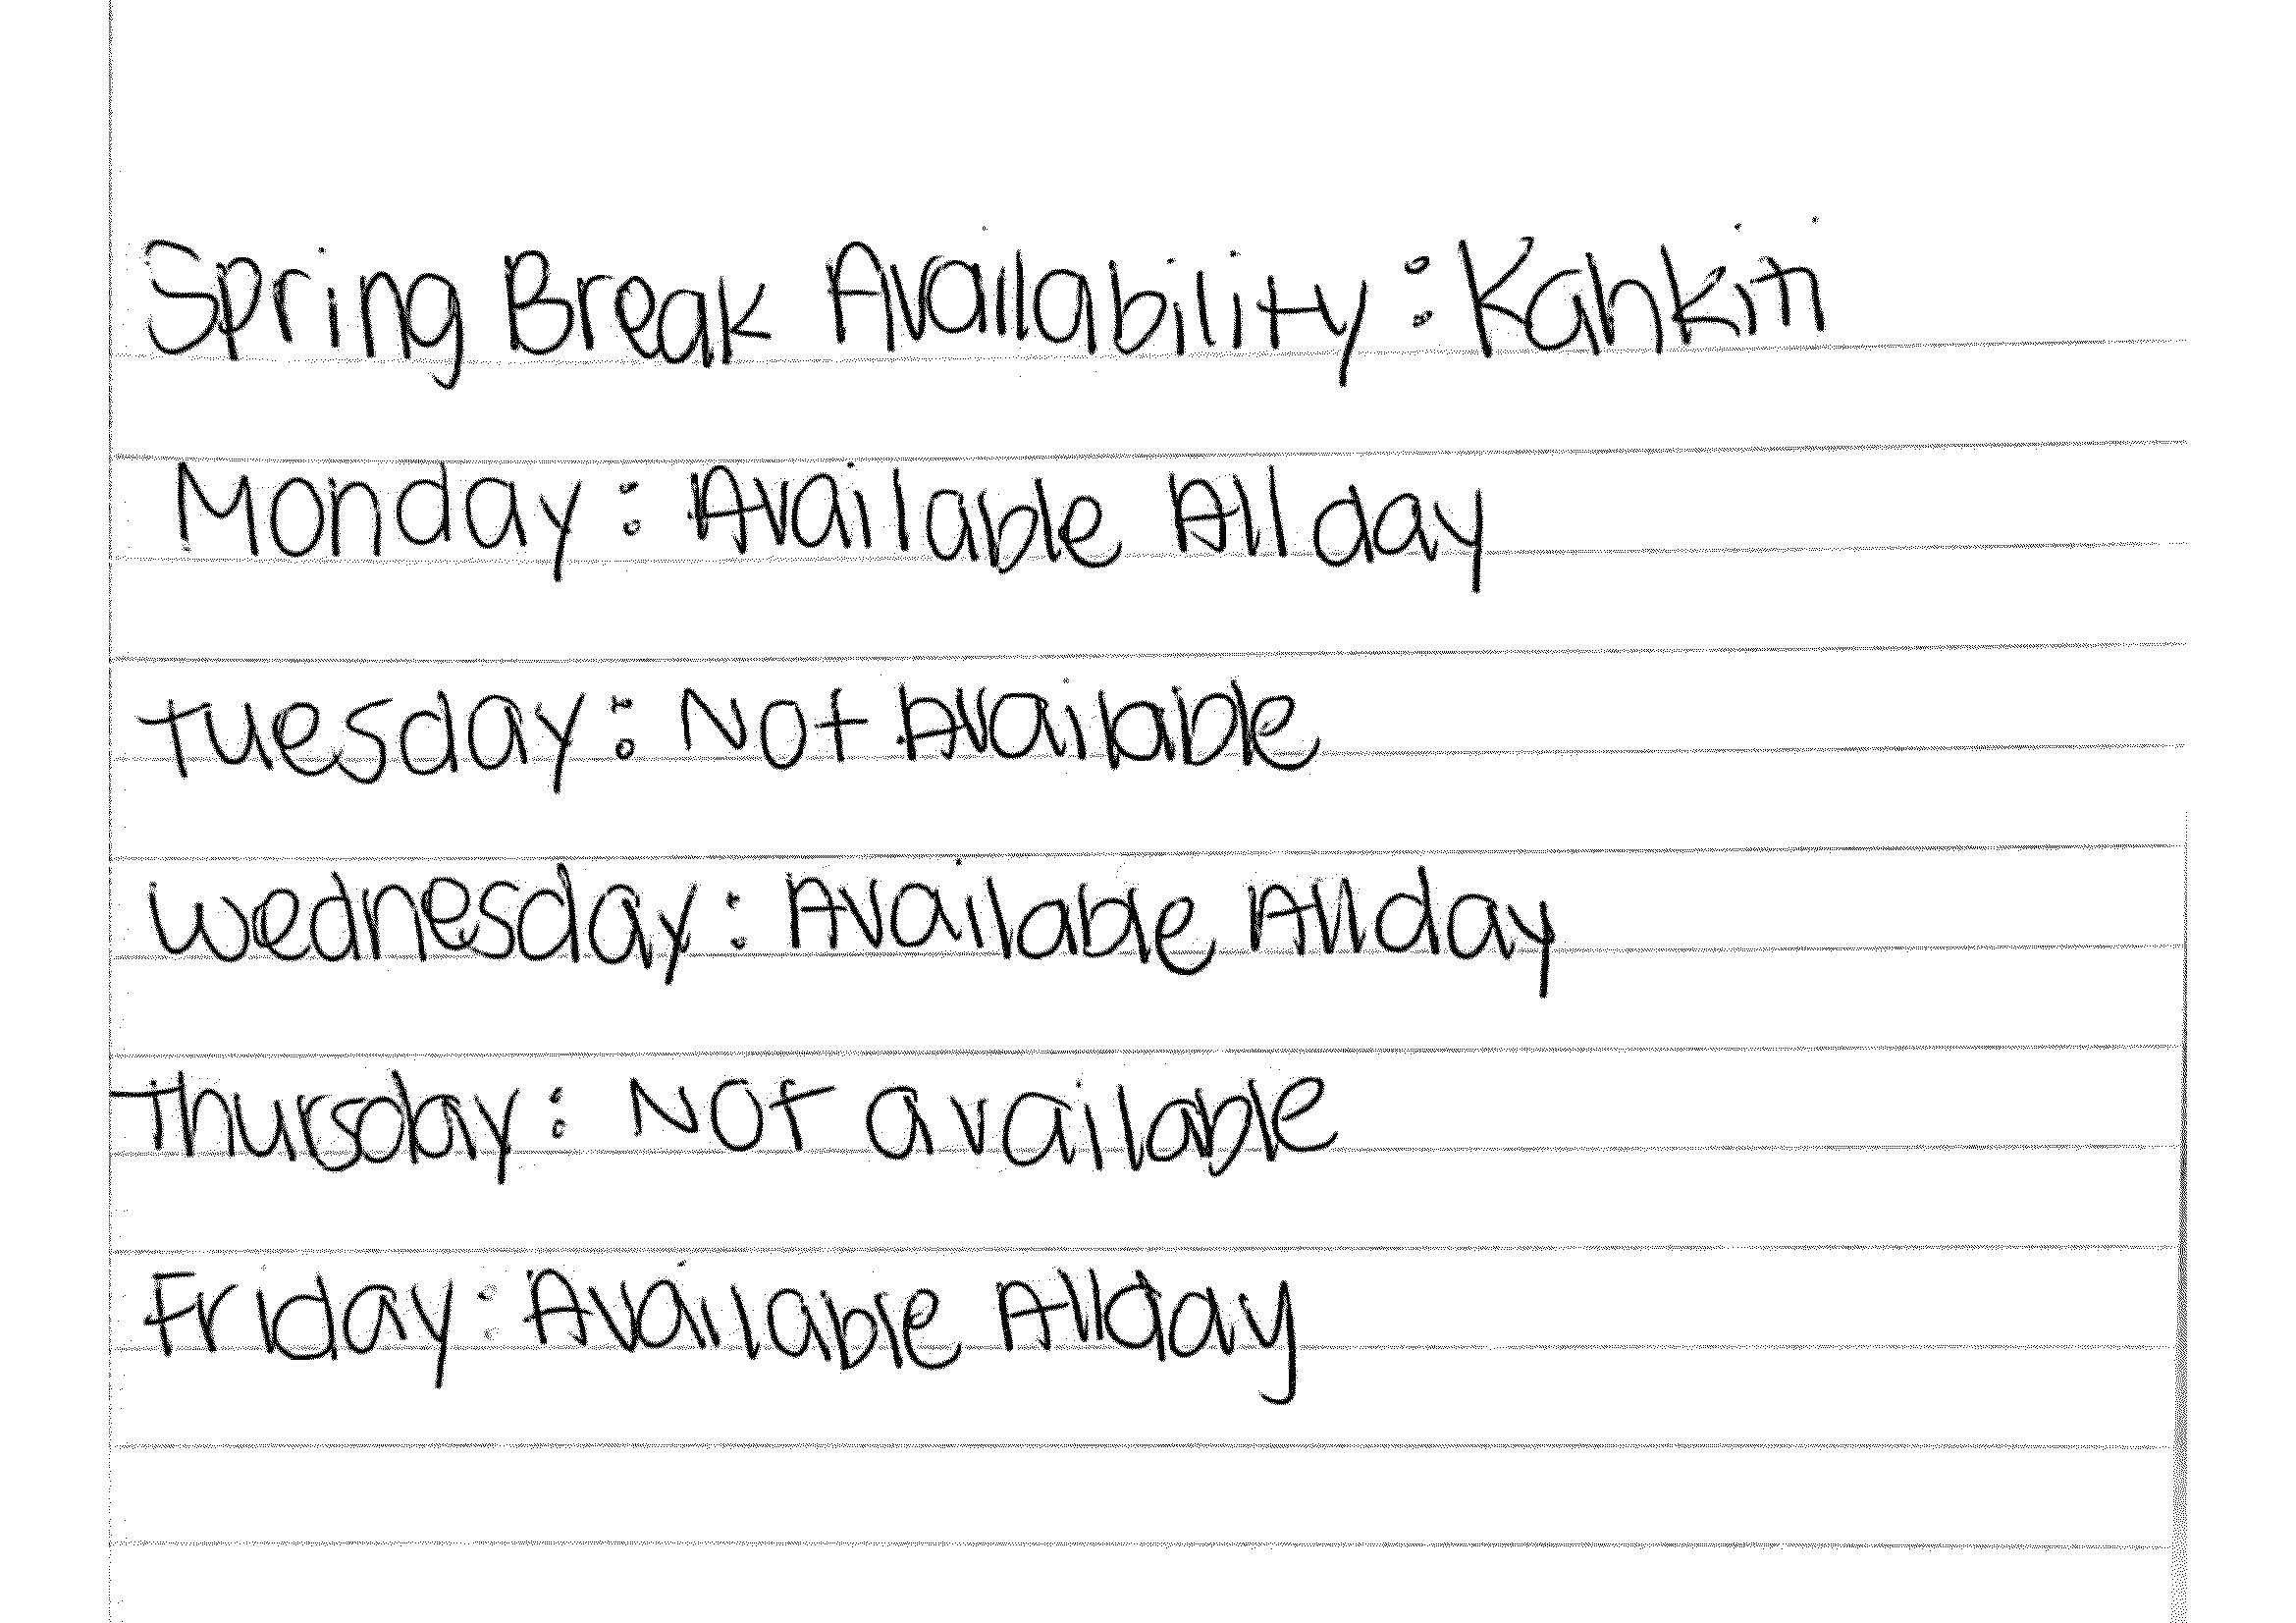 Spring Break Availability: Kahkiti
Monday: Available All day
Tuesday: Not Available
Wednesday: Available All day
Thursday: Not available
Friday: Available All day